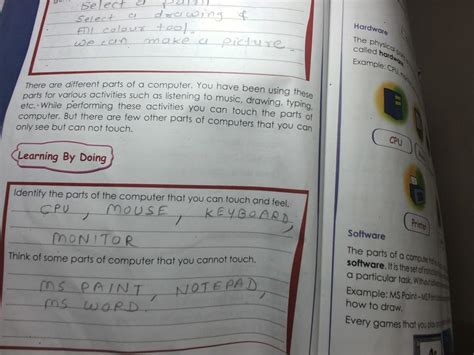 Select a paint
Select a drawing &
fill colour tool.
we can make a picture.
There are different parts of a computer. You have been using these
parts for various activities such as listening to music, drawing, typing,
etc. While performing these activities you can touch the parts of
computer. But there are few other parts of computers that you can
only see but can not touch.
Learning By Doing
Identify the parts of the computer that you can touch and feel.
CPU, MOUSE, KEYBOARD,
MONITOR
Think of some parts of computer that you cannot touch.
MS PAINT, NOTEPAD,
MS WORD.
Hardware
The physical
called hardware
Example: CPU,
CPU
Printer
Software
The parts of a computer that
software. It is the set of
a particular task. Without
Example: MS Paint - MS Paint
how to draw.
Every games that you play